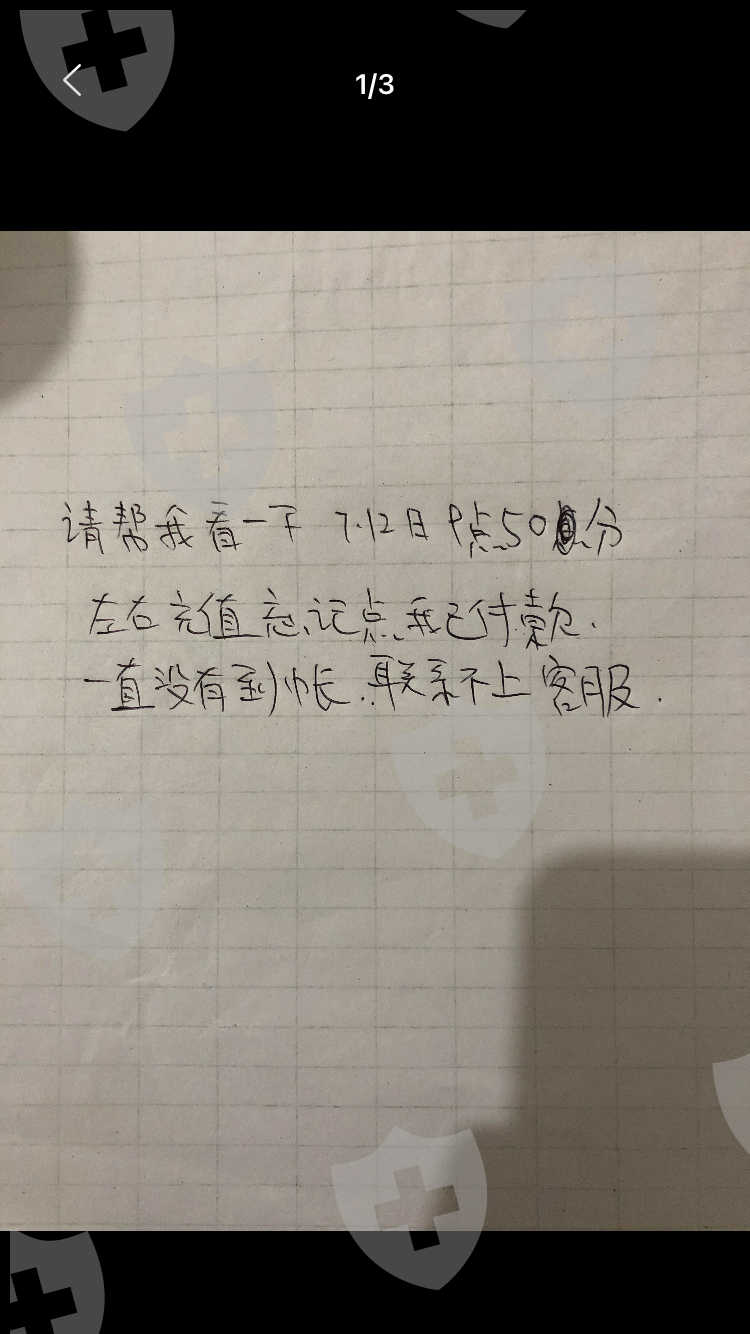 1/3
请帮我看一下 7.12日 9点50分
左右充值忘记点我已付款.
一直没有到帐.联系不上客服.